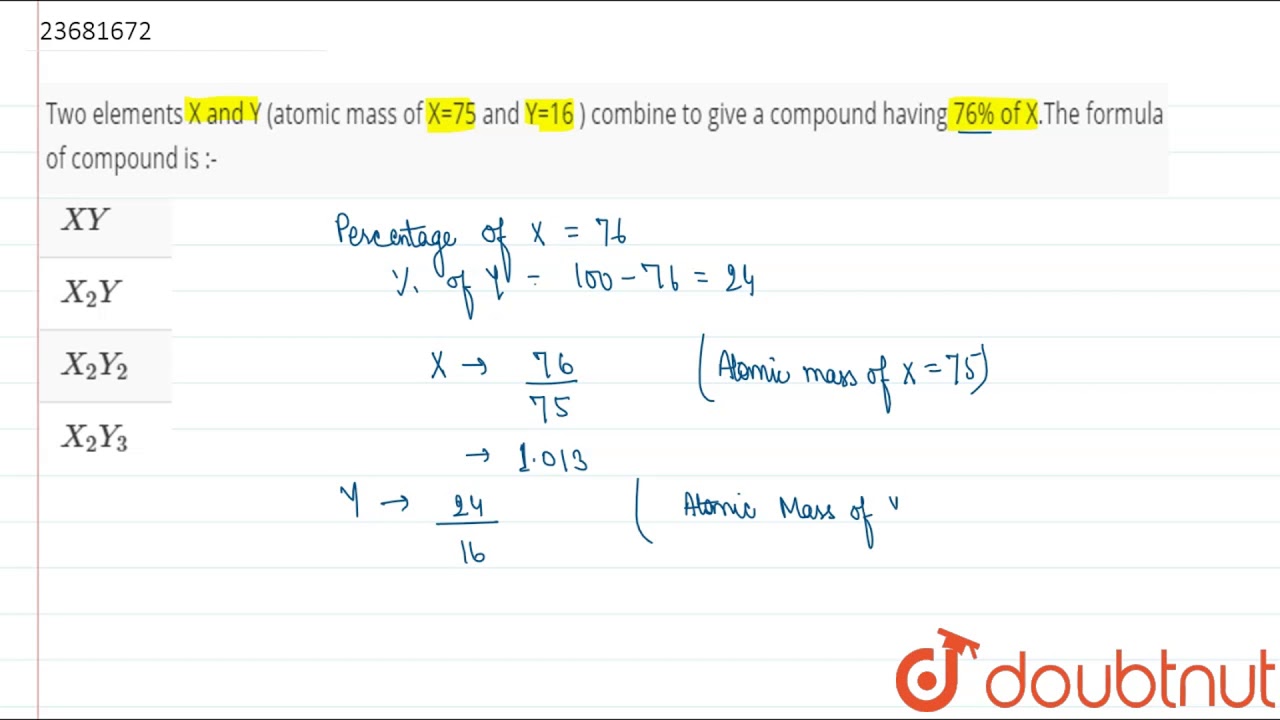 23681672
Two elements X and Y (atomic mass of X=75 and Y=16 ) combine to give a compound having 76% of X.The formula
of compound is :-
XY
X₂Y
X₂Y₂
X₂Y₃
Percentage of X = 76
% of Y = 100 - 76 = 24
X → 76/75 (Atomic mass of X = 75)
→ 1.013
Y → 24/16 ( Atomic Mass of
doubtnut